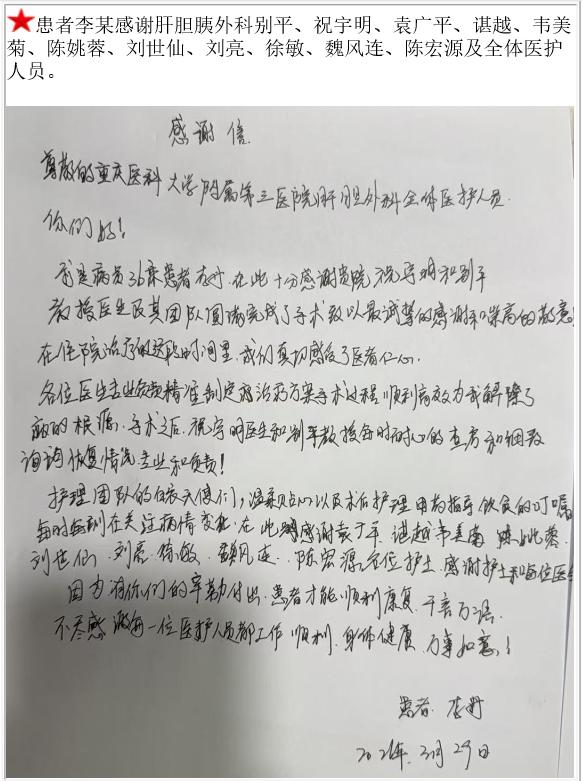 患者李某感谢肝胆胰外科别平、祝宇明、袁广平、谌越、韦美
菊、陈姚蓉、刘世仙、刘亮、徐敏、魏风连、陈宏源及全体医护
人员。
感谢信
尊敬的重庆医科大学附属第三医院肝胆外科全体医护人员
你们好!
我是病员36床患者 在此十分感谢贵院祝宇明和别平
教授医生及其团队圆满完成了手术致以最诚挚的感谢和崇高的敬意
在住院治疗的这段时间里,我们真切感受了医者仁心.
各位医生专业 精准制定 治疗方案手术过程顺利高效为我解除了
病的根源.手术之后.祝宇明医生和别平教授每时耐心的查房和细致
询问恢复情况专业和负责!
护理团队的白衣天使们,温柔贴心以及术后护理用药指导饮食的叮嘱
每时每刻在关注病情变化.在此 感谢袁广平.谌越韦美菊 陈姚蓉.
刘世仙.刘亮.徐敏.魏风连.陈宏源各位护士.感谢护士和每位医生
因为有你们的辛勤付出.患者才能顺利康复.千言万语.
不尽感 每一位医护人员都工作顺利.身体健康.万事如意!
患者:
月29日